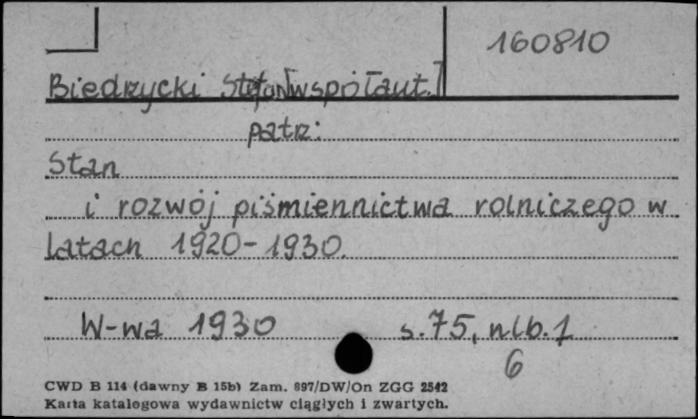 160810
Biedrzycki Stefan [współaut.]
patrz:
Stan
i rozwój piśmiennictwa rolniczego w
latach 1920-1930.
W-wa 1930 s. 75, nlb. 1
6
CWD B 114 (dawny B 15b) Zam. 897/DW/On ZGG 2542
Karta katalogowa wydawnictw ciągłych i zwartych.